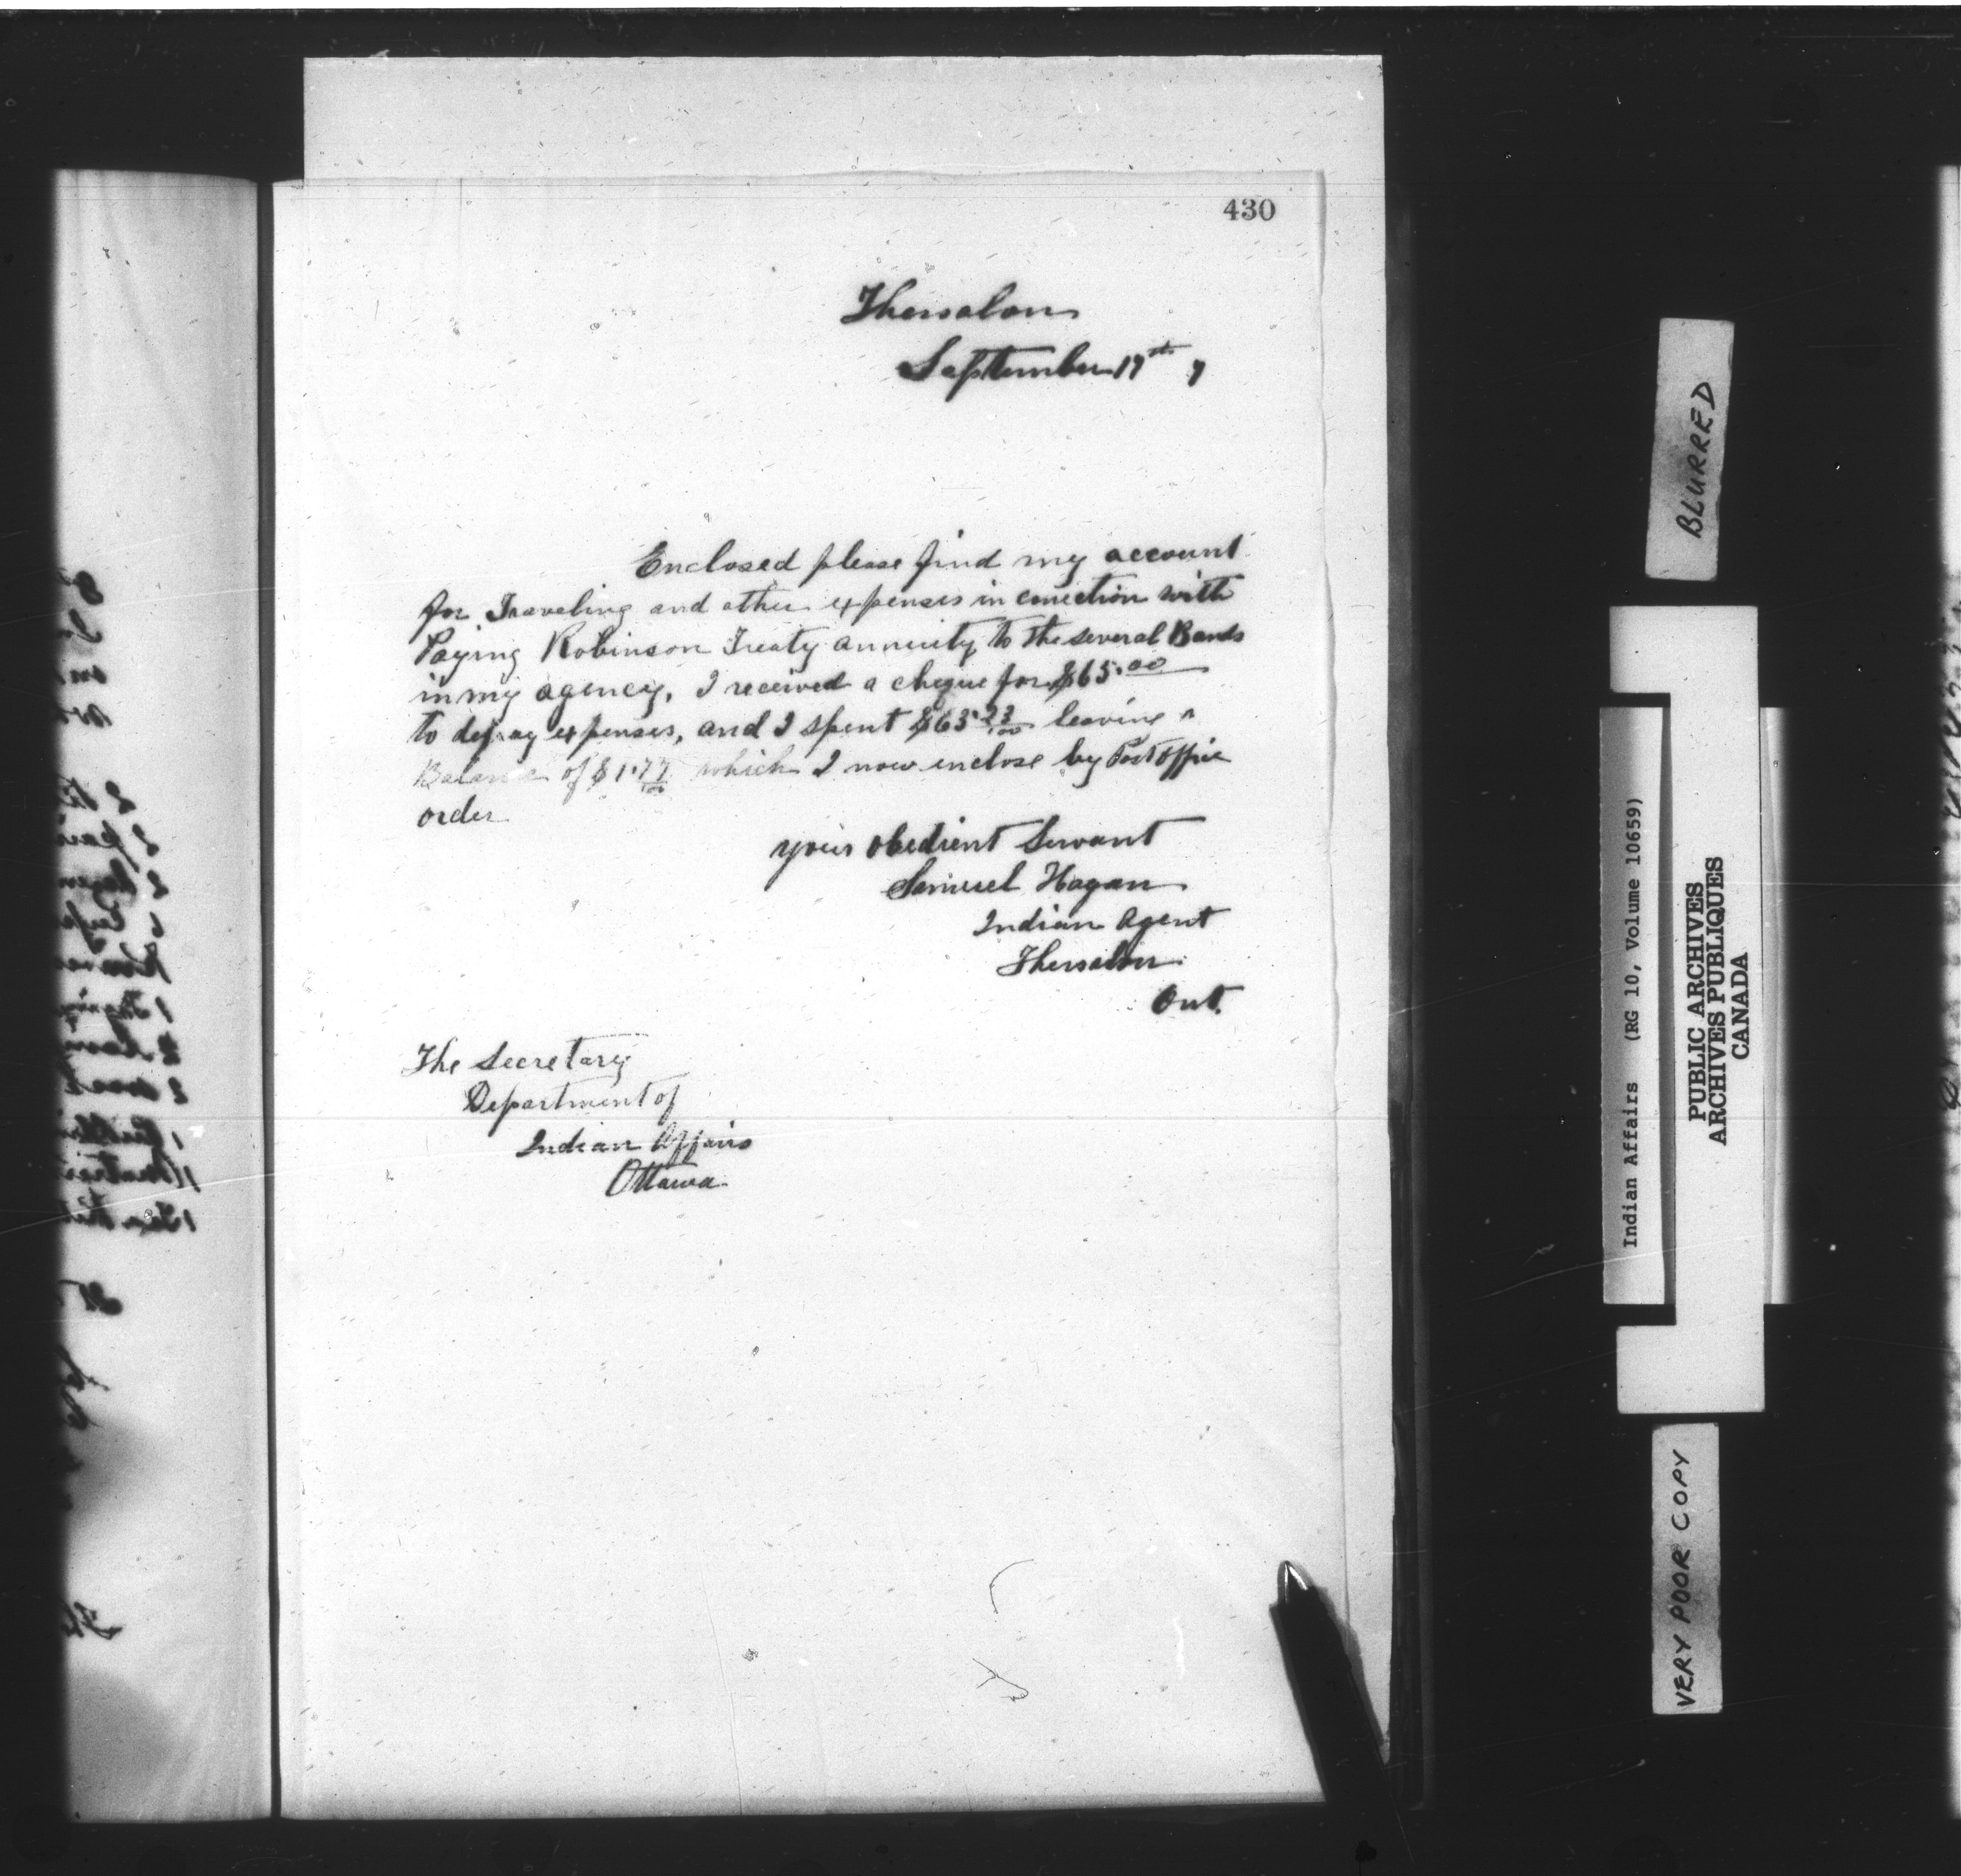 430
Thessalon
September 17th 7
Enclosed please find my account
for Traveling and other expenses in conection with
Paying Robinson Treaty annuity to the several Bands
in my agency, I received a cheque for $65.00
to defray expenses, and I spent $63.23/100 leaving a
Balance of $1.77/100 which I now enclose by Post Office
order
your obedient Servant
Samuel Hagan
Indian Agent
Thessalon
Ont.
The Secretary
Department of
Indian Affairs
Ottawa
BLURRED
Indian Affairs (RG 10, Volume 10659)
PUBLIC ARCHIVES
ARCHIVES PUBLIQUES
CANADA
VERY POOR COPY